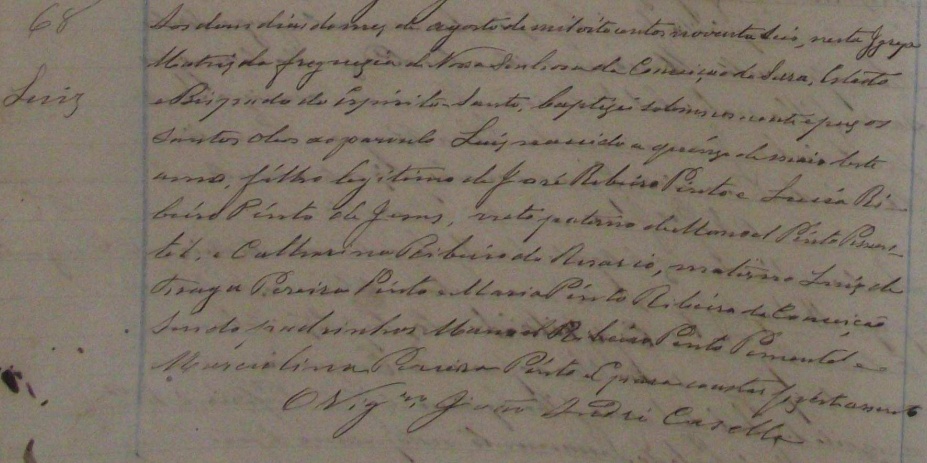 68
Aos dous dias do mez de agosto de mil oito centos noventa seis, nesta Igreja
Matriz da freguezia de Nossa Senhora da Conceição da Serra, Estado
Luiz
e Bispado do Espirito-Santo, baptizei solemnemente e puz os
santos oleos ao parvulo Luiz nascido a quinze de maio deste
anno, filho legitimo de José Ribeiro Pinto e Luiza Ri-
beiro Pinto de Jesus, neto paterno de Manoel Pinto Pimen-
tel, e Catharina Ribeiro do Rosario, materno Luiz de
Fraga Pereira Pinto e Maria Pinto Ribeiro da Conceição
sendo padrinhos Manoel Ribeiro Pinto Pimentel e
Marcolina Pereira Pinto. E para constar fiz este assento
O Vigro João Casella